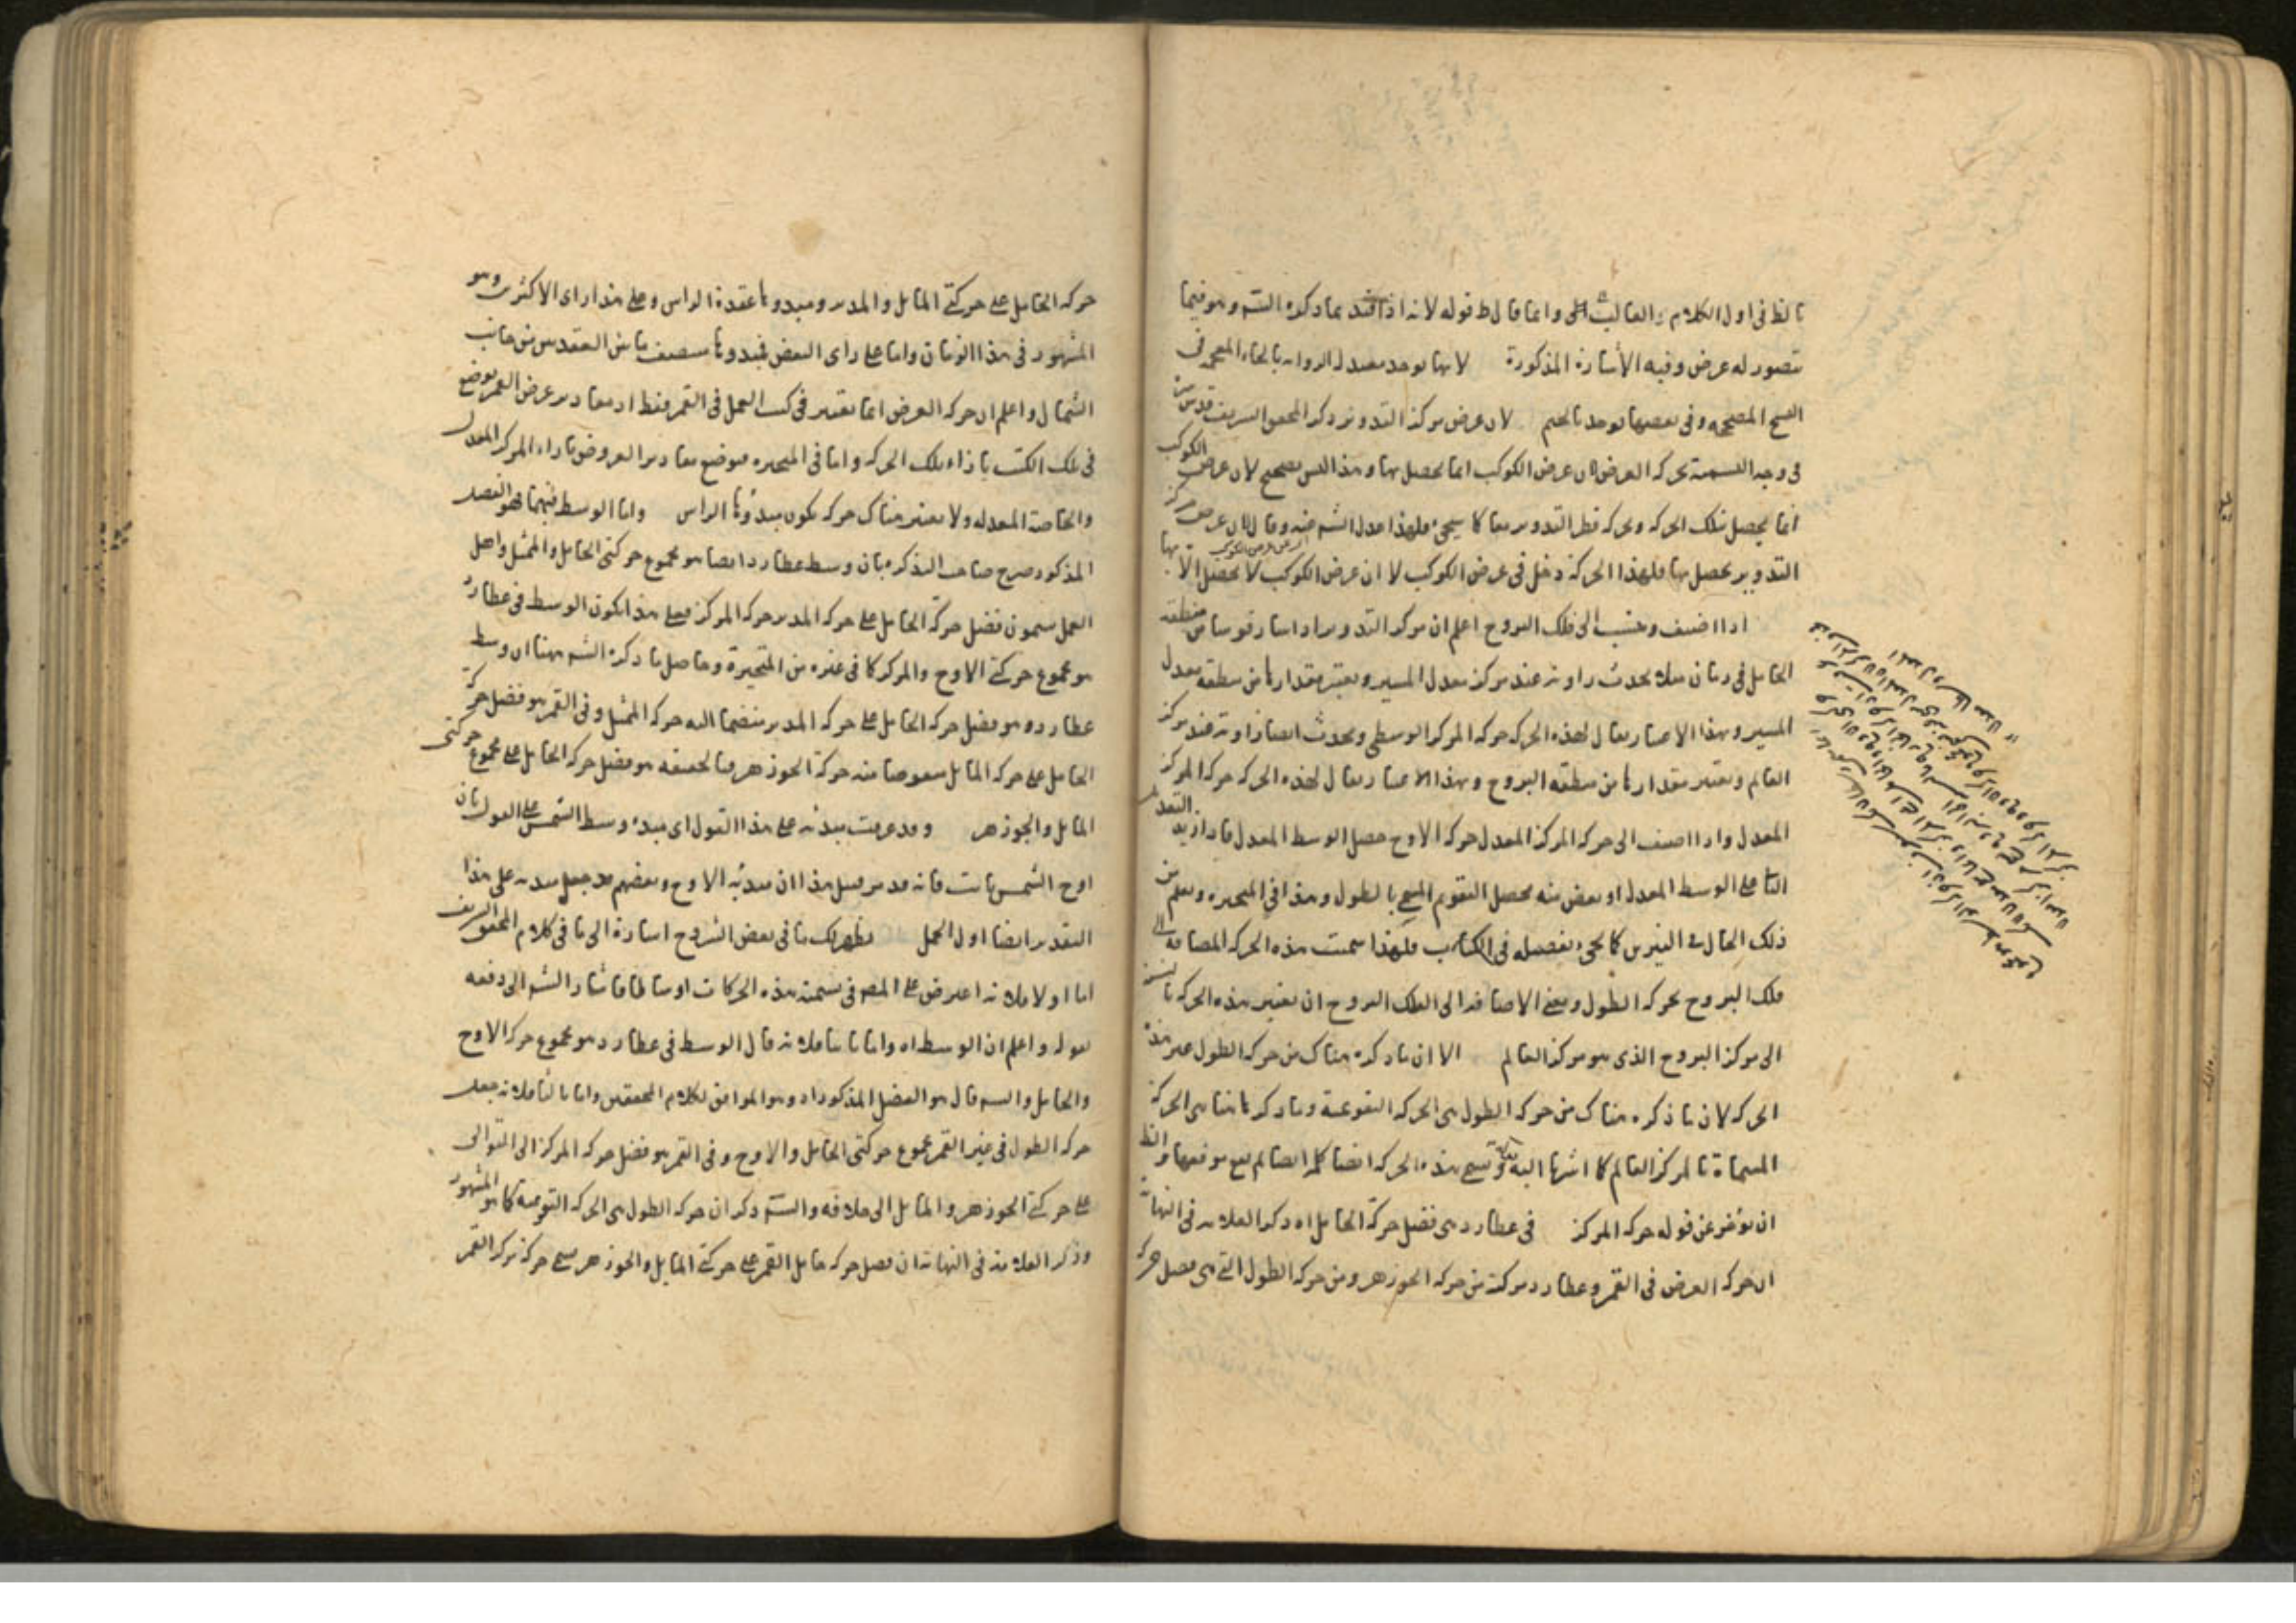 تالظ فى اول الكلام و الغالب الى وانما قال ط قوله لانه اذا قيد بما ذكره الشه وهو فيما
يتصور له عرض وفيه الأشارة المذكورة لانها توجد بعبد الروايه بالحاء المعجمه فى
النسخ المصححه وفى بعضها توجد بالجيم لان عرض مركز التدوير ذكر المحقق الشريف قدس سره
فى وجه التسمية بحركة العرض لان عرض الكوكب انما يحصل بها وهذا ليس بصحيح لان عرض الكوكب
انما يحصل بتلك الحركه وبحركه قطر التدوير معا كما سيجئ فلهذا عدل الشه عنه وقال لان عرض مركز
التدوير يحصل بها فلهذا الحركة دخل فى عرض الكوكب لا ان عرض الكوكب لا يحصل الا بها
اذا اضيف ونسب الى فلك البروج اعلم ان مركز التدوير اذا سار قوسا من منطقة
الحامل فى زمان مثلا يحدث زاوية عند مركز معدل المسير ويعتبر مقدارها من منطقة معدل
المسير وبهذا الاعتبار يقال لهذه الحركه حركه المركز الوسطى ويحدث ايضا زاوية عند مركز
العالم ويعتبر مقدارها من منطقه البروج وبهذا الاعتبار يقال لهذه الحركه حركه المركز
المعدل واذا اضيف الى حركه المركز المعدل حركه الاوج حصل الوسط المعدل فاذا زيد التعديل
الثا على الوسط المعدل او نقص منه يحصل التقويم المسمى بالطول وهذا فى المتحيره ويعلم من
ذلك الحال فى النيرين كما يجئ تفصيله فى الكتاب فلهذا سميت هذه الحركه المضافه الى
فلك البروج بحركه الطول ومعنى الاضافه الى الفلك البروج ان يعتبر هذه الحركه بالنسبة
الى مركز البروج الذى هو مركز العالم الا ان ما ذكره هناك من حركه الطول غير هذه
الحركه لان ما ذكره هناك من حركه الطول هى الحركه التقويمية وما ذكر ها هنا هى الحركه
المسماة بالمركز العالم كما اشرنا اليه وتسمى هذه الحركه ايضا كلمه ايضا لم يقع موقعها والظ
ان يؤخر عن قوله حركه المركز فى عطارد هى فضل حركة الحامل اه ذكر العلامه فى النهايه
ان حركه العرض فى القمر وعطارد مركبة من حركه الجوزهر ومن حركه الطول التى هى فضل حركه
حركه الحامل على حركتى المائل والمدير ومبدوها عقدة الراس وعلى هذا راى الاكثرين وهو
المشهور فى هذا الزمان واما على راى البعض فمبدوها منتصف ما بين العقدتين من جانب
الشمال واعلم ان حركه العرض انما يعتبر فى كتب العمل فى القمر فقط اذ مقادير عرض القمر يوضع
فى تلك الكتب بازاء تلك الحركه واما فى المتحيره فيوضع مقادير العروض بازاء المركز المعدل
والخاصة المعدله ولا يعتبر هناك حركه يكون مبدؤها الراس واما الوسط فيهما فهو الفضل
المذكور صرح صاحب التذكره بان وسط عطارد ايضا هو مجموع حركتى الحامل والممثل واهل
العمل يسمون فضل حركة الحامل على حركه المدير حركه المركز فعلى هذا يكون الوسط فى عطارد
هو مجموع حركتى الاوج والمركز كما فى غيره من المتحيرة وحاصل ما ذكره الشه ههنا ان وسط
عطارد هو فضل حركه الحامل على حركه المدير منضما اليه حركه الممثل وفى القمر هو فضل حركه
الحامل على حركه المائل منقوصا منه حركة الجوزهر فبالحقيقه هو فضل حركه الحامل على مجموع حركتى
المائل والجوزهر وقد عرفت مبدئه على هذا القول اى مبدء وسط الشمس على القول بان
اوج الشمس ثابت فانه قد مر قبيل هذا ان مبدئه الاوج وبعضهم قد جعل مبدئه على هذا
التقدير ايضا اول الحمل يظهر لك ما فى بعض الشروح اشارة الى ما فى كلام المحقق الشريف
اما اولا فلانه اعترض على المصه فى تسمية هذه الحركات اوساطا فاشار الشه الى دفعه
بقوله واعلم ان الوسط اه واما ثانيا فلانه قال الوسط فى عطارد هو مجموع حركة الاوج
والحامل والشه قال هو الفضل المذكور اه وهو الموافق لكلام المحققين واما ثالثا فلانه جعل
حركه الطول فى غير القمر مجموع حركتى الحامل والاوج وفى القمر هو فضل حركه المركز الى التوالى
على حركتى الجوزهر والمائل الى خلافه والشه ذكر ان حركه الطول هى الحركه التقويمية كما هو المشهور
وذكر العلامه فى النهايه ان فضل حركه حامل القمر على حركتى المائل والجوزهر يسمى حركة مركز القمر